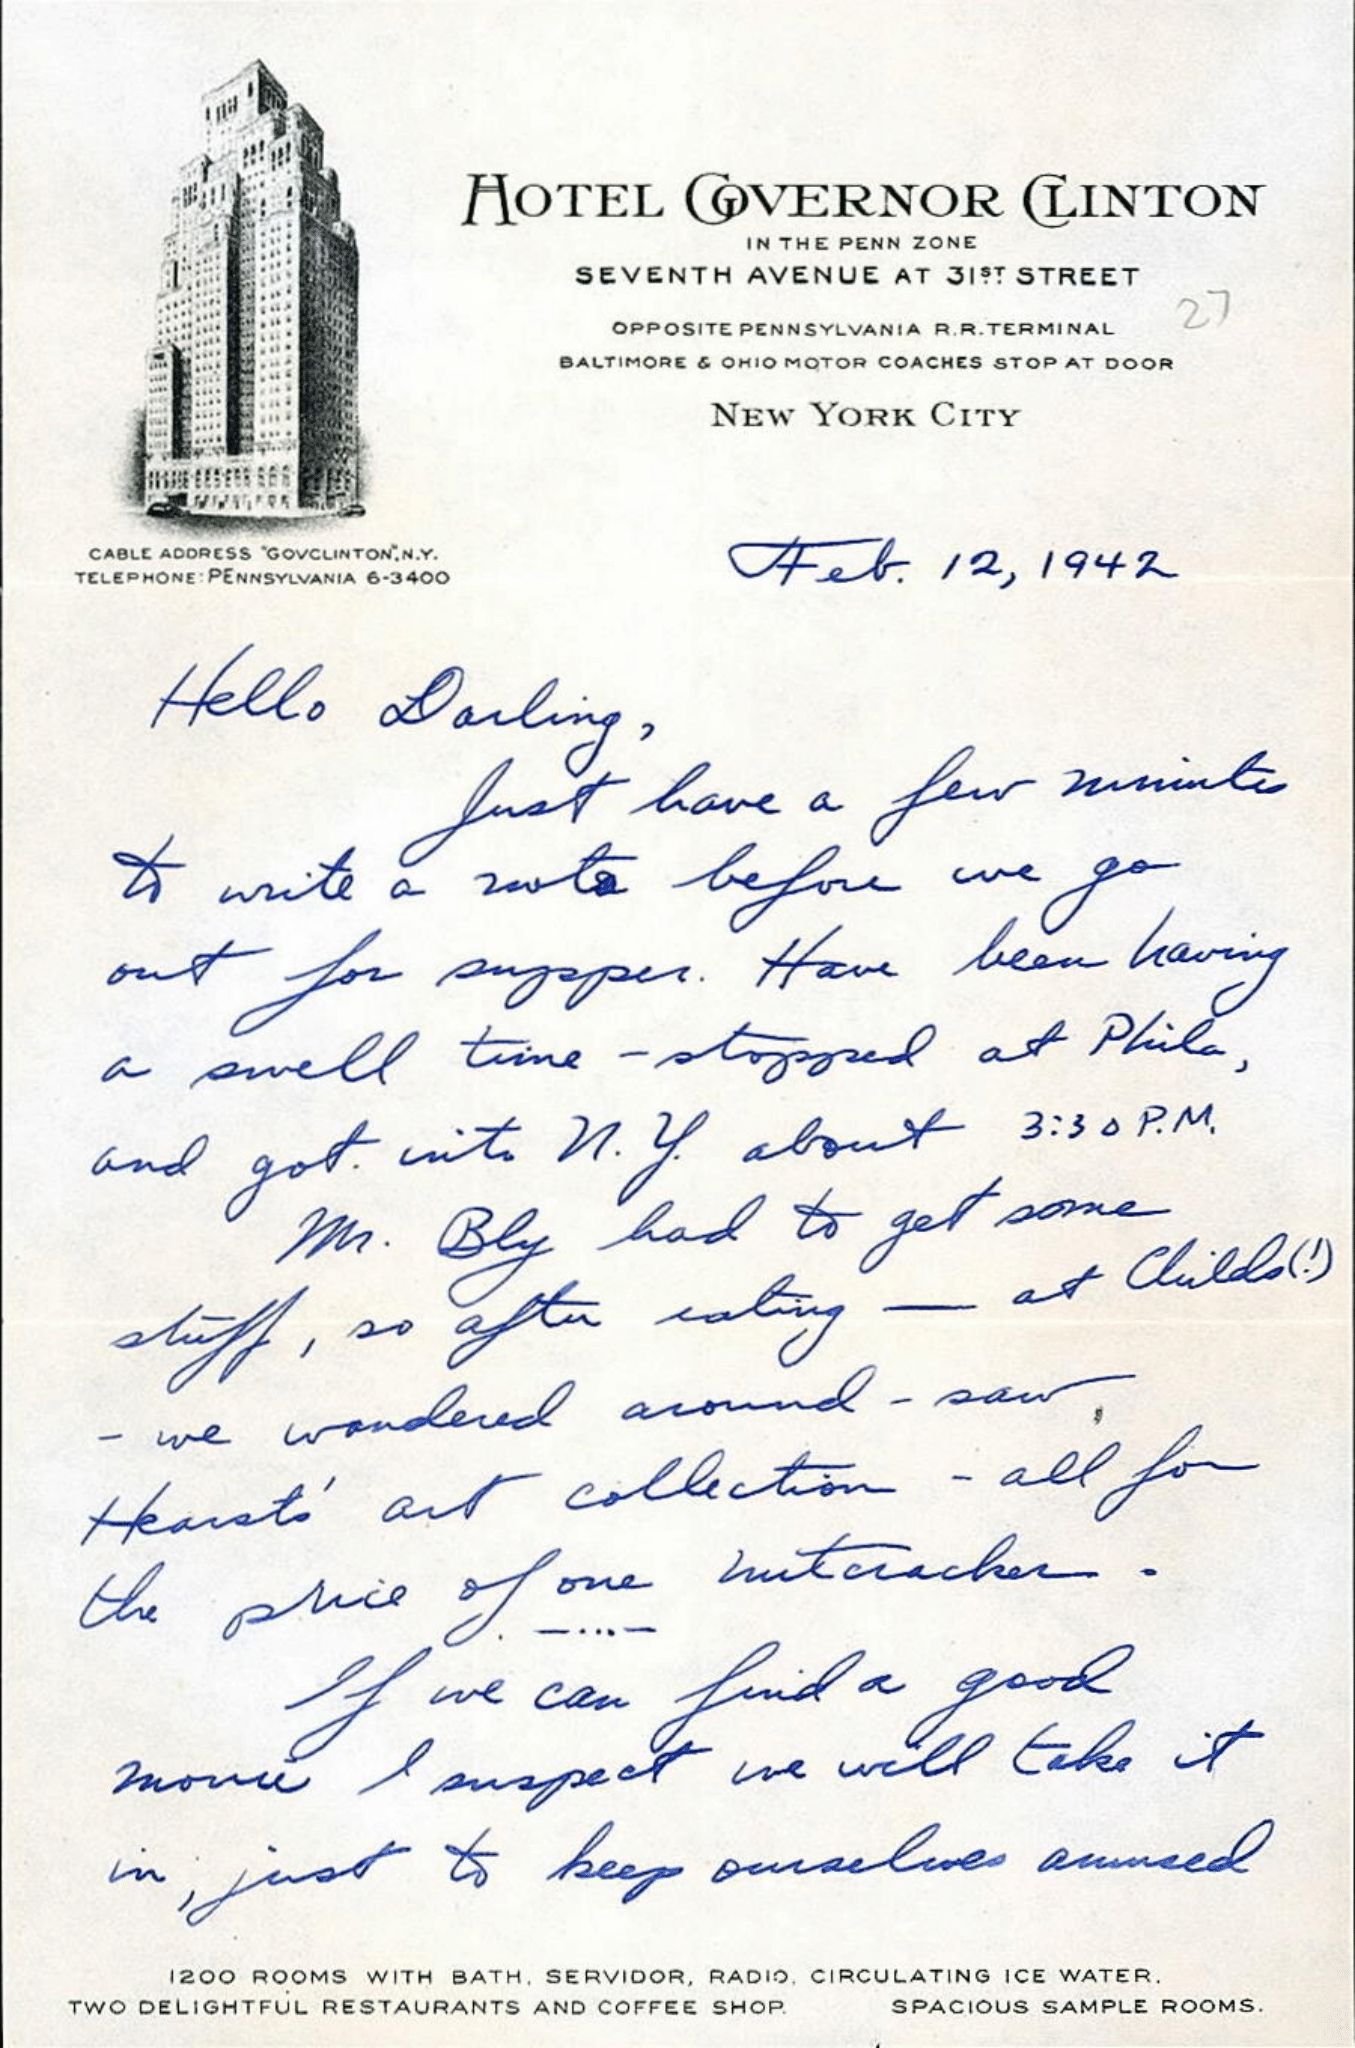 HOTEL GOVERNOR CLINTON
IN THE PENN ZONE
SEVENTH AVENUE AT 31ST STREET
27
OPPOSITE PENNSYLVANIA R.R. TERMINAL
BALTIMORE & OHIO MOTOR COACHES STOP AT DOOR
NEW YORK CITY
CABLE ADDRESS "GOVCLINTON", N.Y.
TELEPHONE: PENNSYLVANIA 6-3400
Feb. 12, 1942
Hello Darling,
Just have a few minutes
to write a note before we go
out for supper. Have been having
a swell time - stopped at Phila,
and got into N.Y. about 3:30 P.M.
Mr. Bly had to get some
stuff, so after eating — at Childs(!)
- we wandered around - saw
Hearsts' art collection - all for
the price of one nutcracker.
—...—
If we can find a good
movie I suspect we will take it
in, just to keep ourselves amused
1200 ROOMS WITH BATH, SERVIDOR, RADIO, CIRCULATING ICE WATER.
TWO DELIGHTFUL RESTAURANTS AND COFFEE SHOP. SPACIOUS SAMPLE ROOMS.